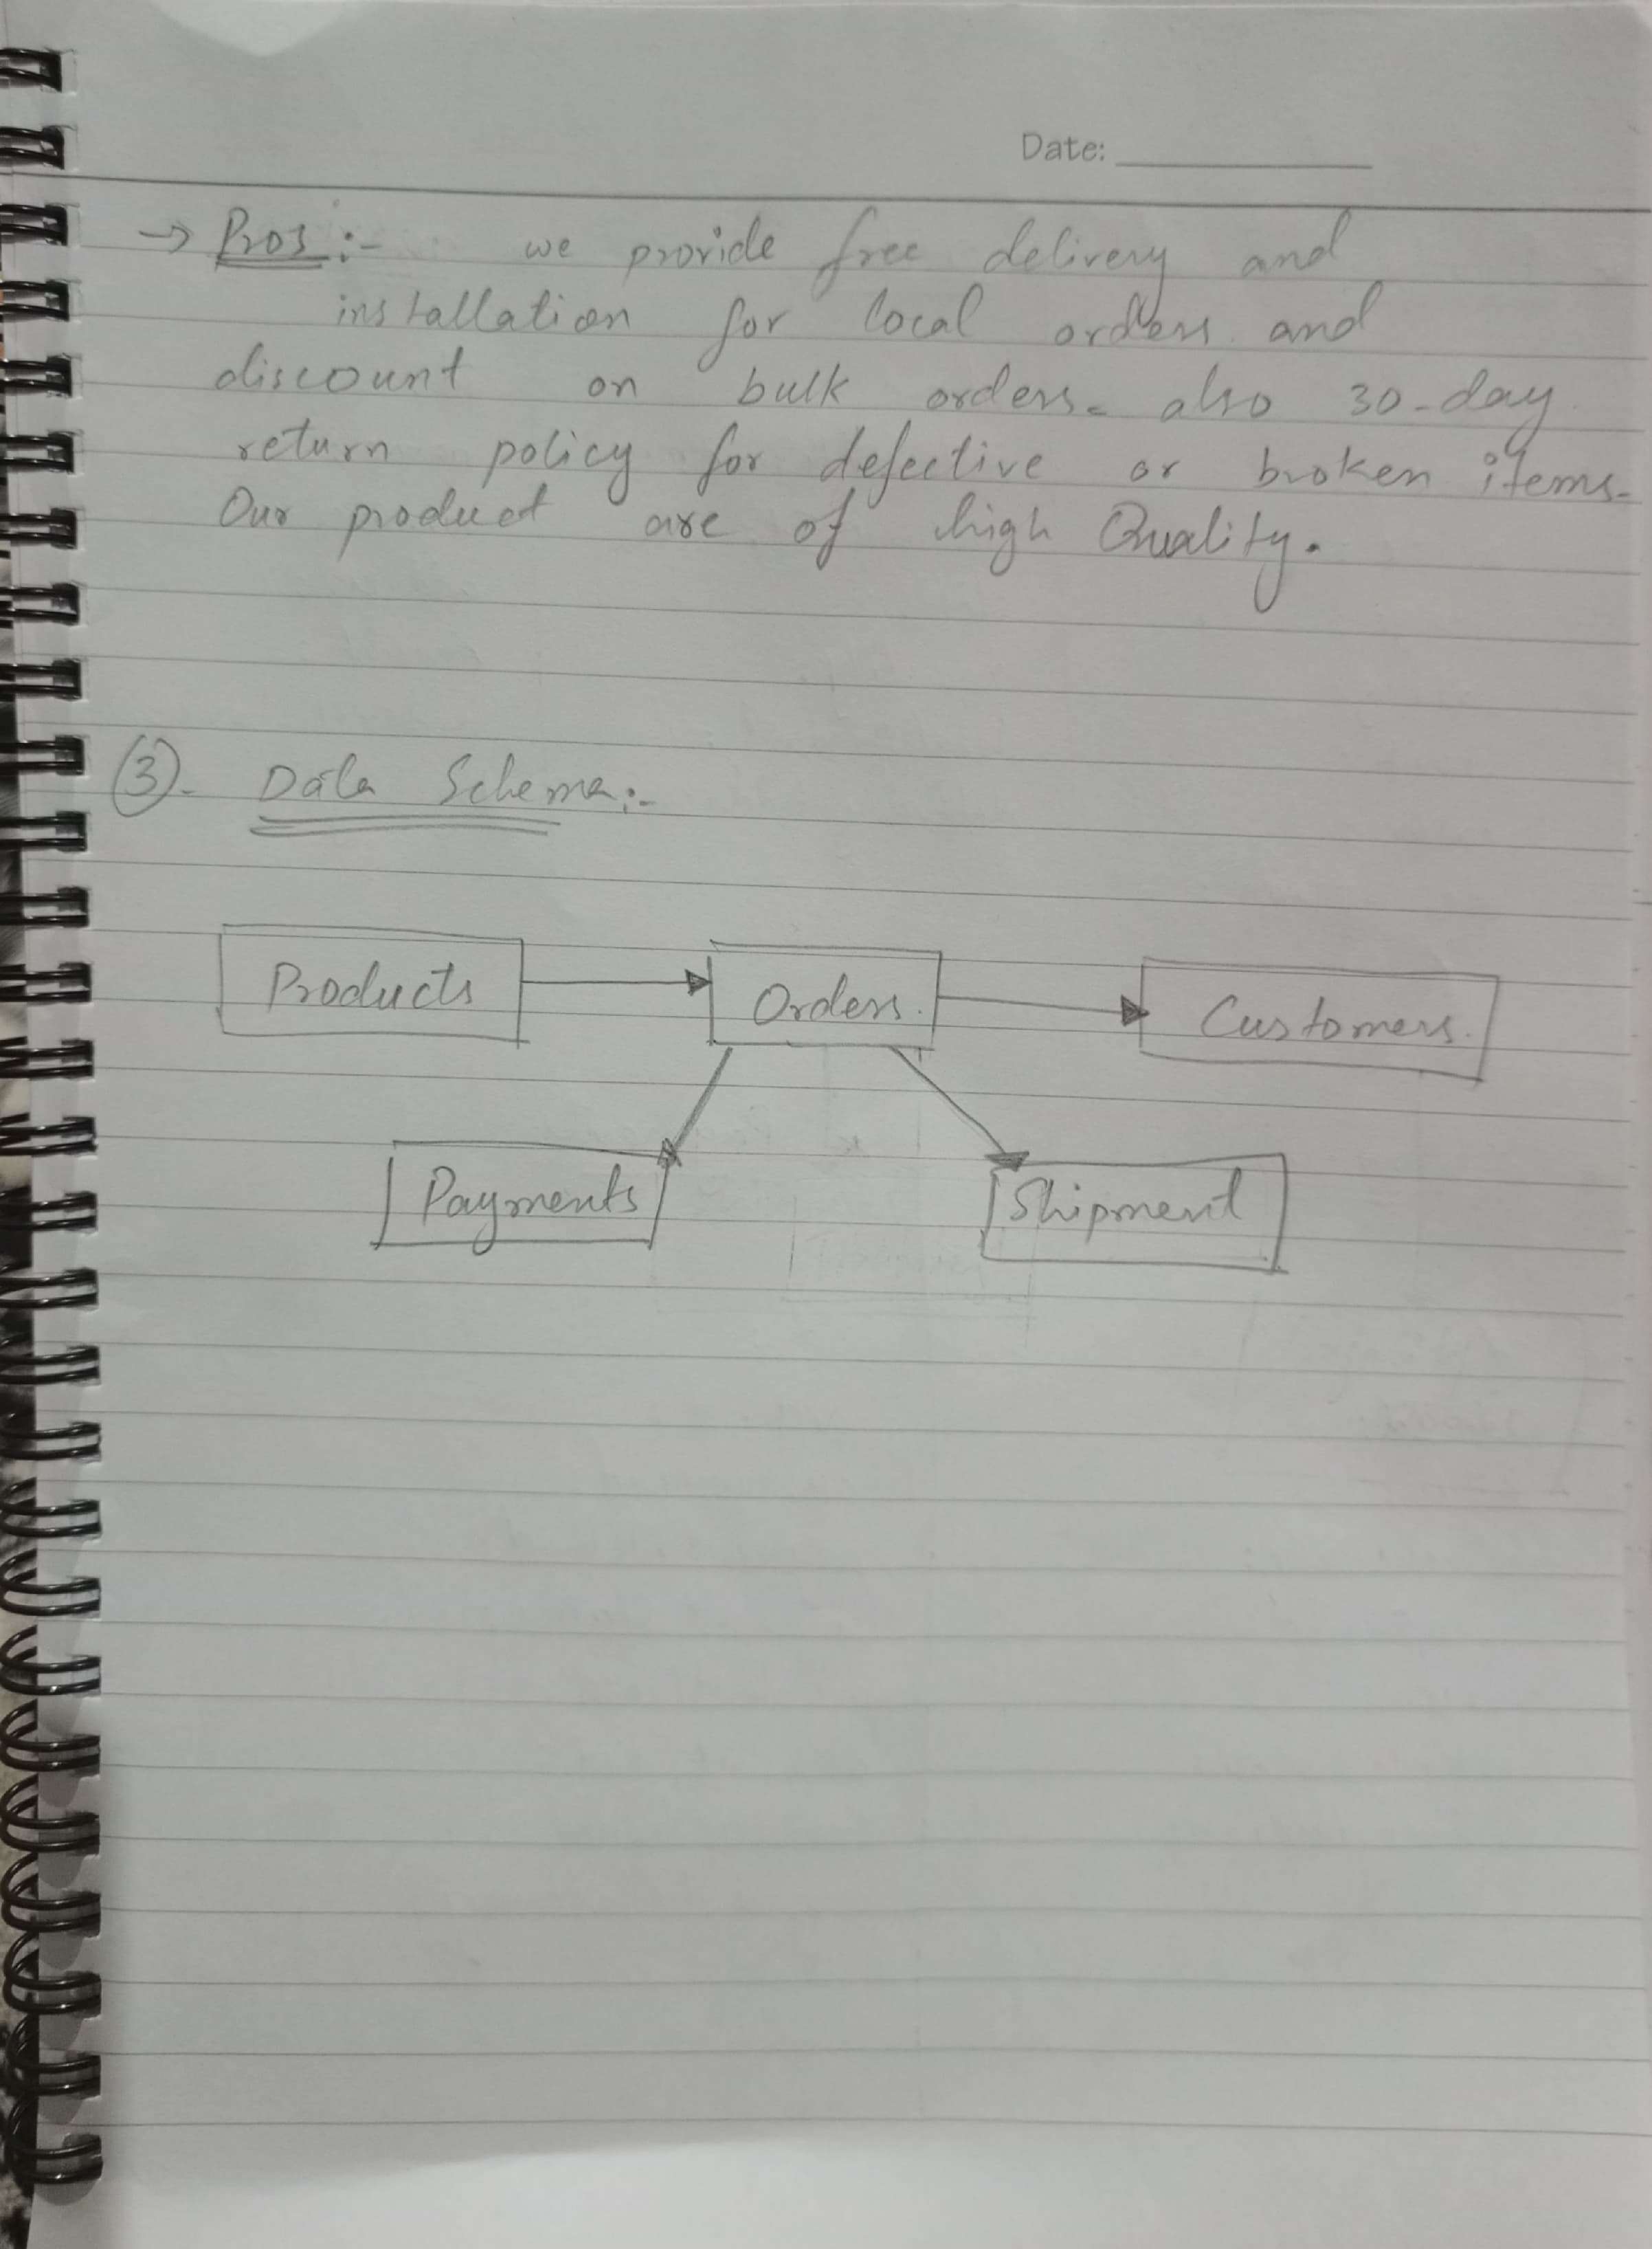 Date:
→ Pros :- we provide free delivery and
installation for local orders and
discount on bulk orders. also 30-day
return policy for defective or broken items.
Our product are of high Quality.
③- Data Schema:-
Products Orders. Customers.
Payments Shipment